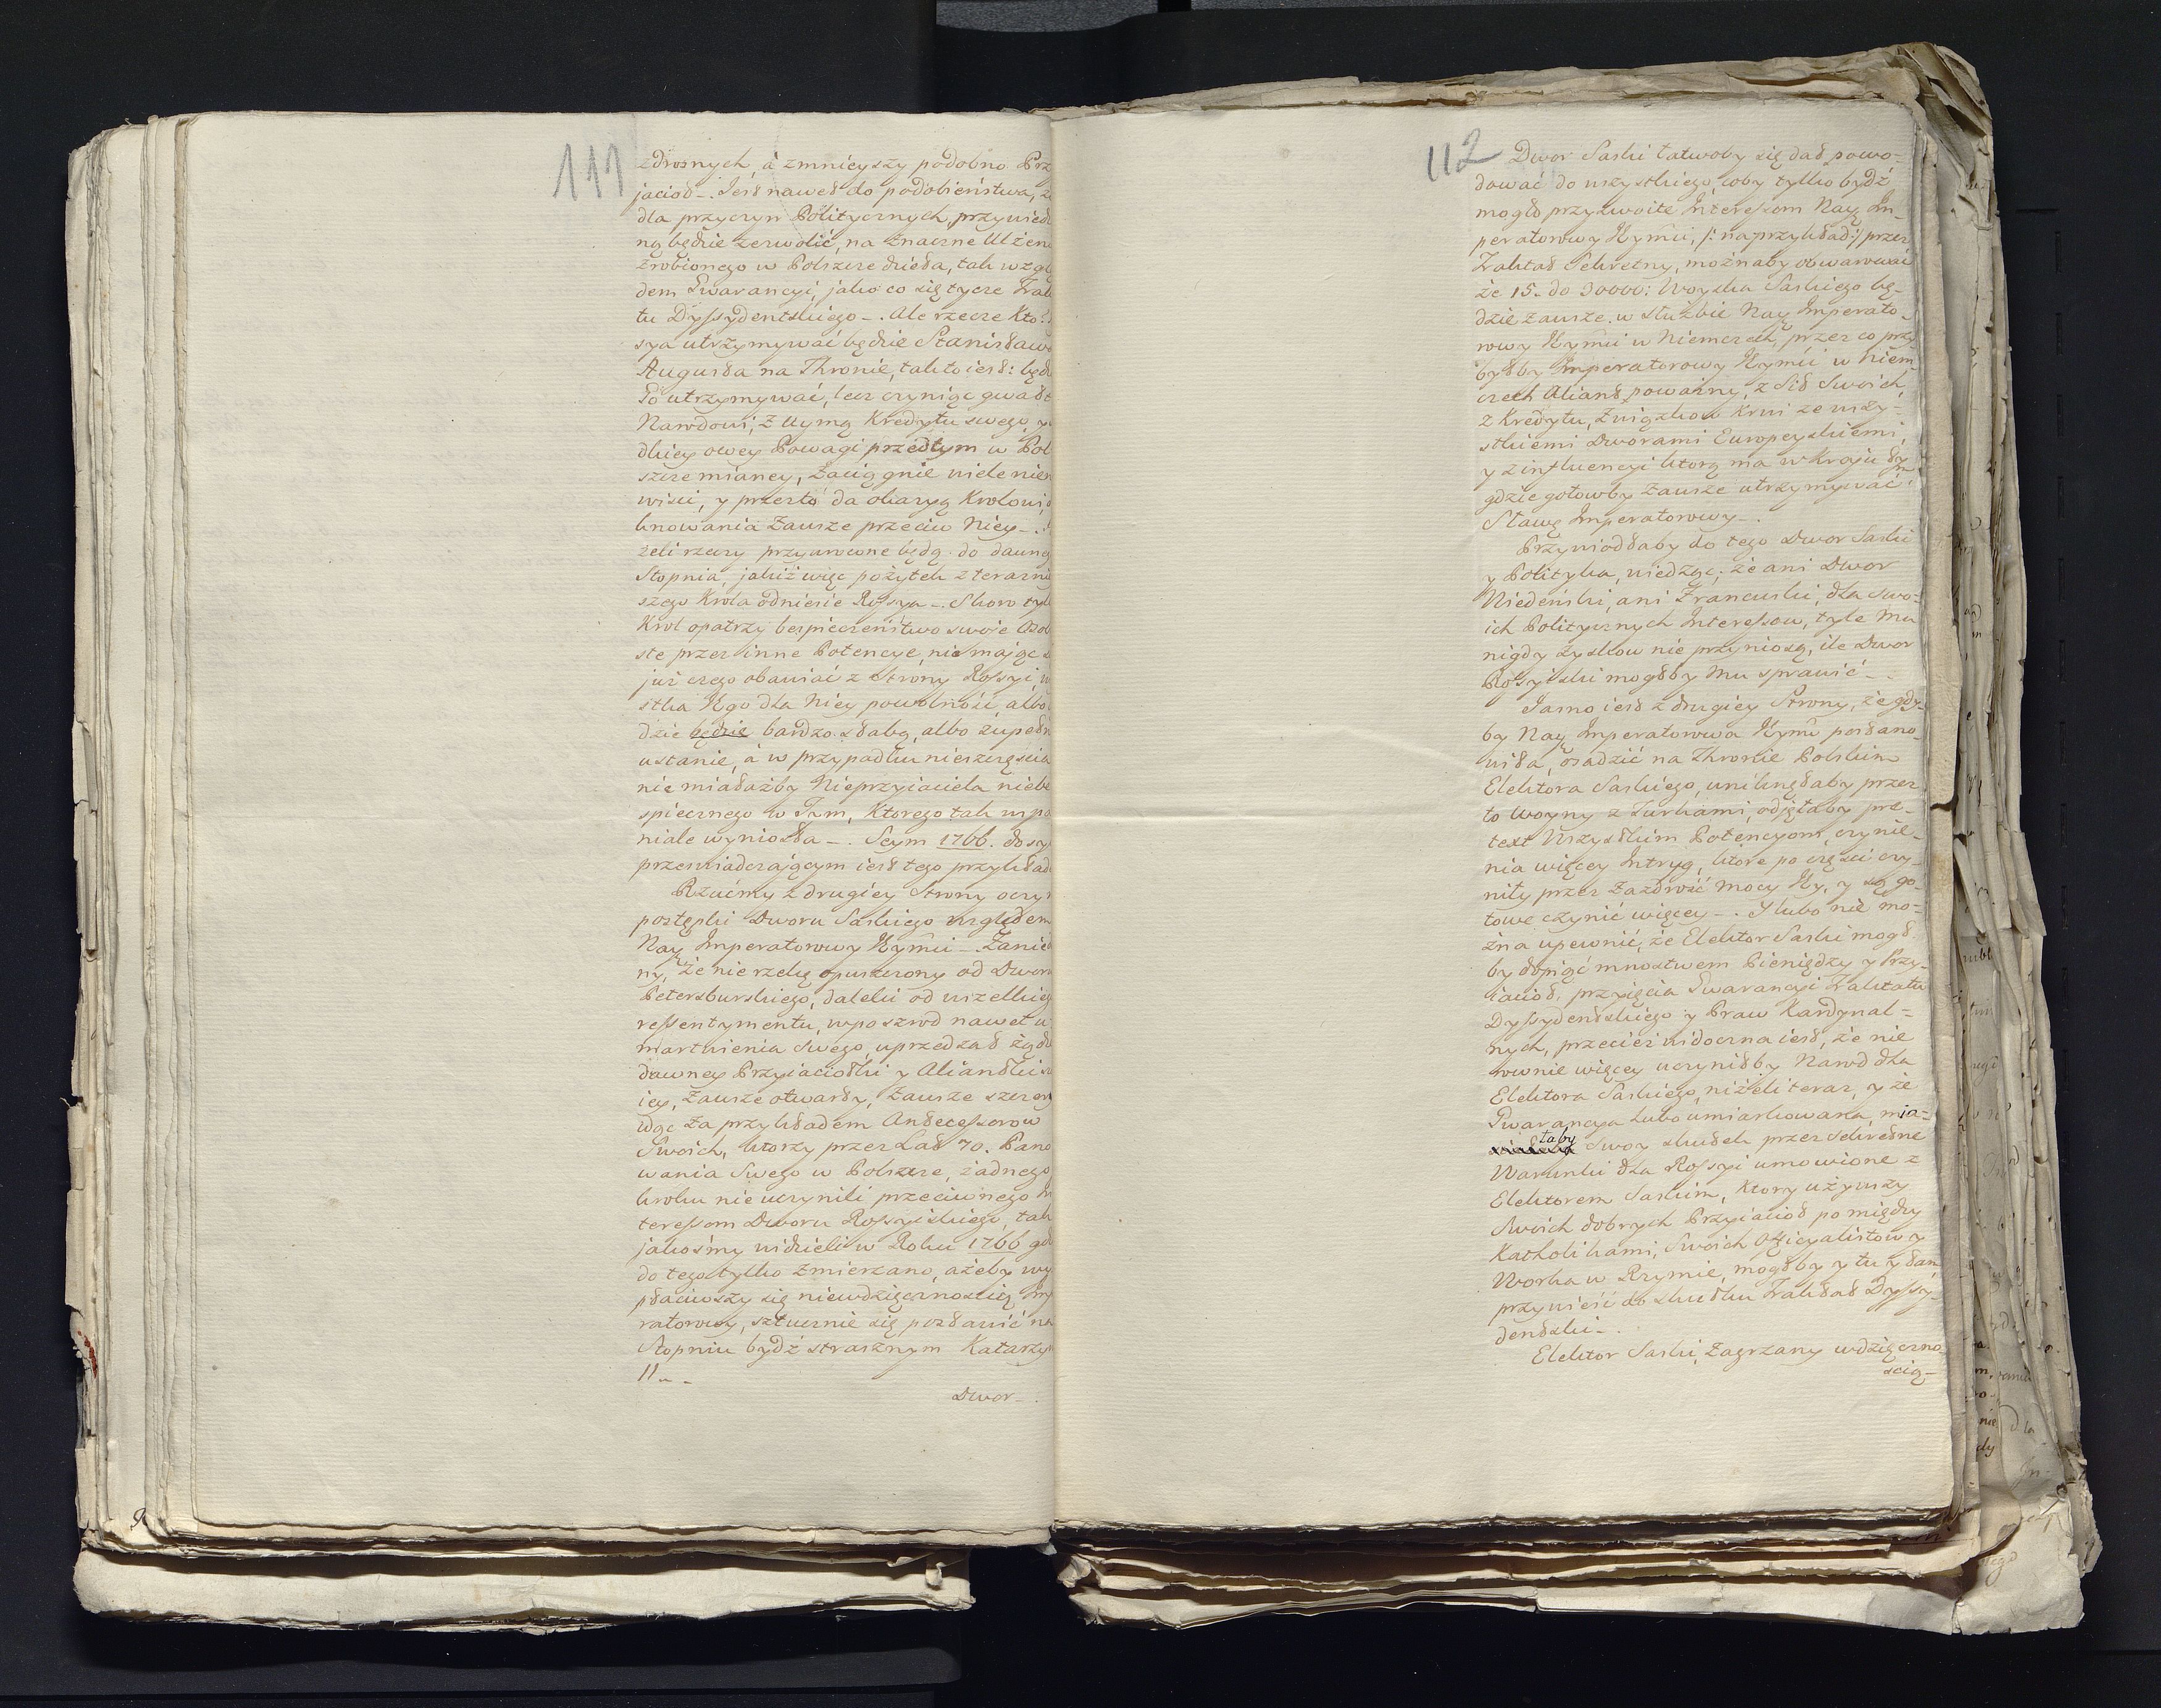 111
zdrosnych, à zmnieyszy podobno Prz
jacioł -. Jest nawet do podobieństwa, ż
dla przyczyn Politycznych, przywiedz
ną będzie zezwolić, na znaczne Ulżen
zrobionego w Polszcze dzieła, tak wzglę
dem Gwarancyi, jako co się tycze Trak
tu Dyssydentskiego -. Ale rzecze kto:
sya utrzymywać będzie Stanisława
Augusta na Thronie, tak to iest: będz
Go utrzymywać, lecz czyniąc gwałt
Narodowi, z Uymą Kredytu swego, y
dkiey owey Powagi przedtym w Pol
szcze mianey, Zaciągnie wiele nien
wiści, y przez to da okazyą Krolowi,
knowania Zawsze przeciw Niey -.
żeli rzeczy przywrocone będą do dawneg
Stopnia, jakiż więc pożytek z teraznie
szego Krola odniesie Rossya -. Skoro tyl
Krol opatrzy bespieczeństwo swoie Osob
ste przez inne Potencye, nie mając
już czego obawiać z Strony Rossyi, w
stka Jego dla Niey powolność, albo
dzie będzie bardzo słabą, albo zupełn
ustanie, à w przypadku nieszczęścia
nie miałażby Nieprzyiaciela niebe
spiecznego w Tym, Ktorego tak wspa
niale wyniosła -. Seym 1766. dosy
przeswiadczającym iest tego przykład
Rzućmy z drugiey Strony oczy
postępki Dworu Saskiego względem
Nay Imperatorowy Jeymci -. Zanied
ny, że nie rzekę opuszczony od Dworu
Petersburskiego, daleki od wszelkieg
ressentymentu, wposzrod nawet u
martwienia swego, uprzedzał żąd
dawney Przyiaciołki y Aliantki s
iey, Zawsze otwarty, Zawsze szczery
idąc za przykładem Antecessorow
Swoich, ktorzy przez Lat 70. Pano
wania Swego w Polszcze, żadnego
kroku nie uczynili przeciwnego In
teressom Dworu Rossyiskiego, tak
jakośmy widzieli w Roku 1766 gd
do tego tylko zmierzano, ażeby wy
płaciwszy się niewdzięcznością Imp
ratorowy, sztucznie się postawić na
Stopniu bydź strasznym Katarzy
II. -
Dwor -.
112
Dwor Saski łatwoby się dał powo-
dować do wszystkiego, coby tylko bydź
mogło przyzwoite Interessom Nay. Im-
peratorowy Jeymci, /: naprzykład :/ przez
Traktat Sekretny, możnaby obwarować
że 15. do 30000: Woyska Saskiego bę-
dzie zawsze w służbie Nay Imperato-
rowy Jeymci w Niemczech, przez co przy
byłby Imperatorowy Jeymci w Niem
czech Aliant poważny, z Sił Swoich,
z Kredytu, Związkow Krwi ze wszy-
stkiemi Dworami Europeyskiemi,
y z influencyi ktorą ma w Kraju tym
gdzie gotowby Zawsze utrzymywać
Sławę Imperatorowy -.
Przywiodłaby do tego Dwor Saski
y Polityka, wiedząc, że ani Dwor
Wiedeński, ani Francuski, dla swo-
ich Politycznych Interessow, tyle Mu
nigdy zyskow nie przyniosą, ile Dwor
Rossyiski mogłby Mu sprawić -.
Jasno iest z drugiey Strony, że gdy-
by Nay Imperatorowa Jeymć postano-
wiła, osadzić na Thronie Polskim
Elektora Saskiego, uniknęłaby przez
to Woyny z Turkami, odjęłaby pre-
text Wszystkim Potencyom, czynie-
nia więcey Intryg, ktore po części czy-
niły przez Zazdrość mocy Jey, y są go-
towe czynić więcey -. J lubo nie mo-
żna upewnić, że Elektor Saski mogł-
by dopiąć mnostwem Pieniędzy y Przy-
iacioł, przyięcia Gwarancyi Traktatu
Dyssydentskiego y Praw Kardynal-
nych, przecież widoczna iest, że nie
rownie więcey uczyniłby Narod dla
Elektora Saskiego, niżeli teraz, y że
Gwarancya Lubo umiarkowana, mia-
łaby Swoy skutek przez sekretne
Warunki dla Rossyi umowione z
Elektorem Saskim, Ktory używszy
Swoich dobrych Przyiacioł pomiędzy
Katholikami, Swoich Officyalistow y
Worka w Rzymie, mogłby y tu y tam
przywieść do skutku Traktat Dyssy-
dentski -.
Elektor Saski, Zagrzany wdzięczno
scią -